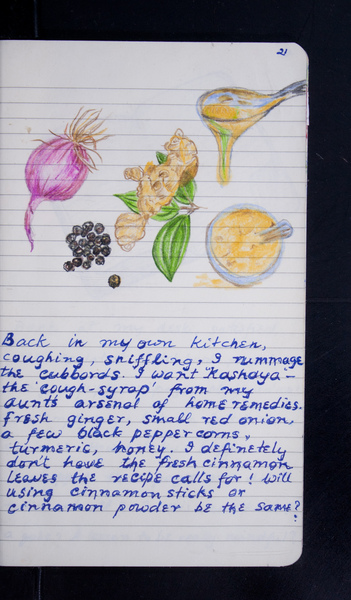 21
Back in my own kitchen,
coughing, sniffling, I rummage
the cubbords. I want 'Kashaya' –
the 'cough-syrap' from my
aunt's arsenal of home remedies.
Fresh ginger, small red onion,
a few black peppercorns,
turmeric, honey. I definetely
don't have the fresh cinnamon
leaves the recipe calls for! Will
using cinnamon sticks or
cinnamon powder be the same?